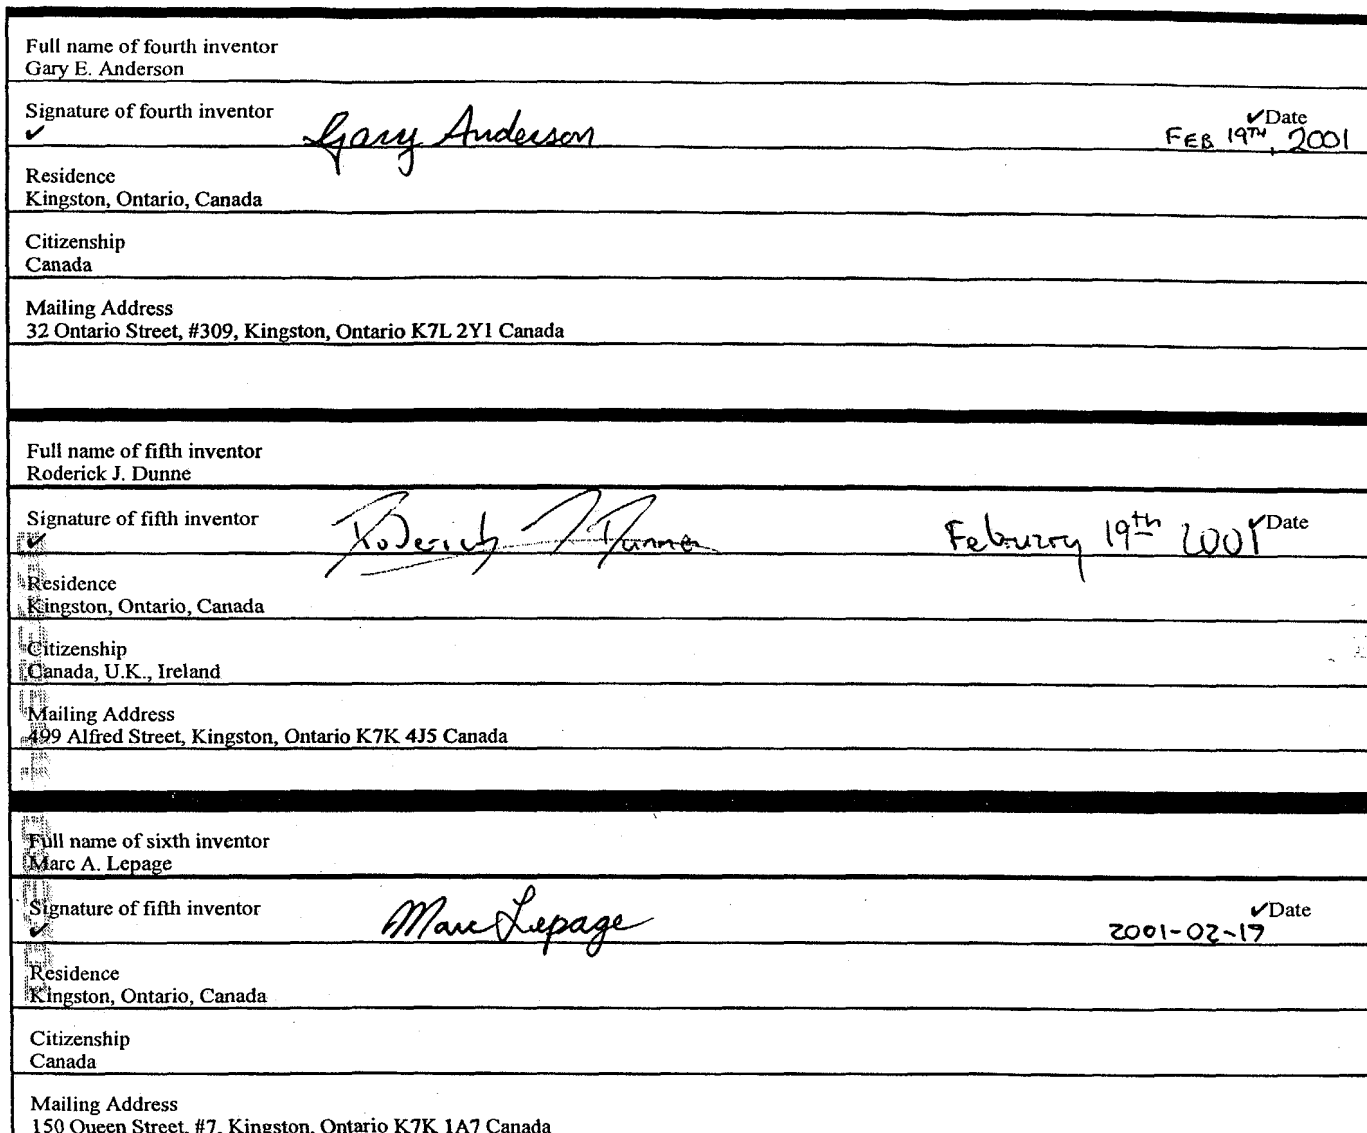 Full name of fourth inventor
Gary E. Anderson
Signature of fourth inventor
✔Date
✔ Gary Anderson FEB 19TH, 2001
Residence
Kingston, Ontario, Canada
Citizenship
Canada
Mailing Address
32 Ontario Street, #309, Kingston, Ontario K7L 2Y1 Canada
Full name of fifth inventor
Roderick J. Dunne
Signature of fifth inventor Roderick J Dunne February 19th 2001 ✔Date
✔
Residence
Kingston, Ontario, Canada
Citizenship
Canada, U.K., Ireland
Mailing Address
499 Alfred Street, Kingston, Ontario K7K 4J5 Canada
Full name of sixth inventor
Marc A. Lepage
Signature of fifth inventor ✔Date
✔ Marc Lepage 2001-02-19
Residence
Kingston, Ontario, Canada
Citizenship
Canada
Mailing Address
150 Queen Street, #7, Kingston, Ontario K7K 1A7 Canada